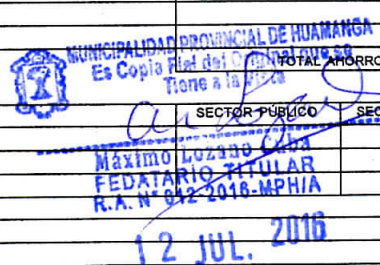 MUNICIPALIDAD PROVINCIAL DE HUAMANGA
Es Copia Fiel del Original que se
Tiene a la Vista
TOTAL AHORRO
SECTOR PÚBLICO
SEC
Máximo Lozano
FEDATARIO TITULAR
R.A. N° 012-2016-MPH/A
12 JUL. 2016